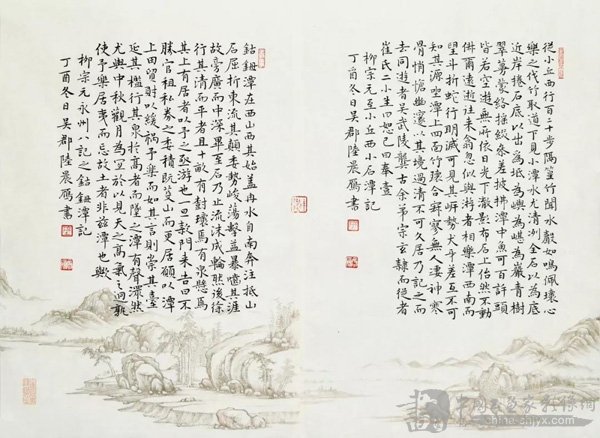 從小丘西行百二十步隔篁竹聞水嚴如鳴佩環心
樂之伐竹取道下見小潭水尤清冽全石以為底
近岸捲石底以出為坻為嶼為嵁為巖青樹
翠蔓蒙絡搖綴參差披拂潭中魚可百許頭
皆若空遊無所依日光下澈影布石上佁然不動
俶爾遠逝往來翕忽似與游者相樂潭西南而
望斗折蛇行明滅可見其岸勢犬牙差互不可
知其源坐潭上四面竹環合寂寥無人淒神寒
骨悄愴幽邃以其境過清不可久居乃記之而
去同遊者吳武陵龔古余弟宗玄隸而從者
崔氏二小生曰恕己曰奉壹
柳宗元至小丘西小石潭記
丁酉冬日吳郡陸晨雁書
鈷鉧潭在西山西其始蓋冉水自南奔注抵山
石屈折東流其顛委勢峻蕩擊益暴嚙其涯
故旁廣而中深畢至石乃止流沫成輪然後徐
行其清而平者且十畝有樹環焉有泉懸焉
其上有居者以予之亟游也一旦款門來告曰不
勝官租私券之委積既芟山而更居願以潭
上田貿財以緩禍予樂而如其言則崇其臺
延其檻行其泉於高者而墜之潭有聲潀然
尤與中秋觀月為宜於以見天之高氣之迥孰
使予樂居夷而忘故土者非茲潭也歟
柳宗元永州八記之鈷鉧潭記
丁酉冬日吳郡陸晨雁書